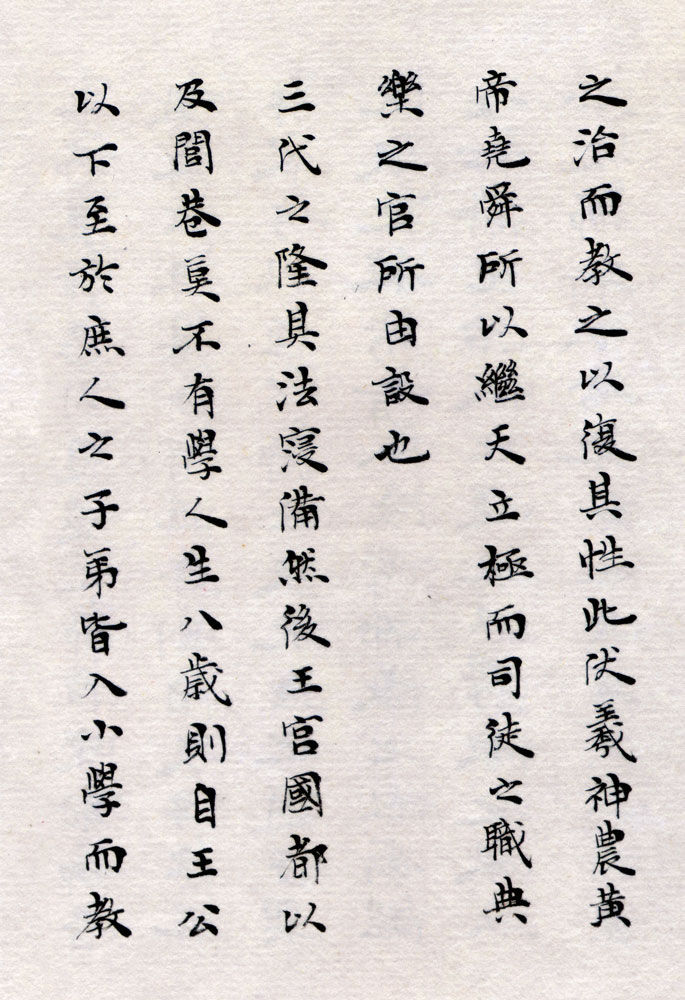 之治而教之以復其性此伏羲神農黃
帝堯舜所以繼天立極而司徒之職典
樂之官所由設也
三代之隆其法寖備然後王宮國都以
及閭巷莫不有學人生八歲則自王公
以下至於庶人之子弟皆入小學而教